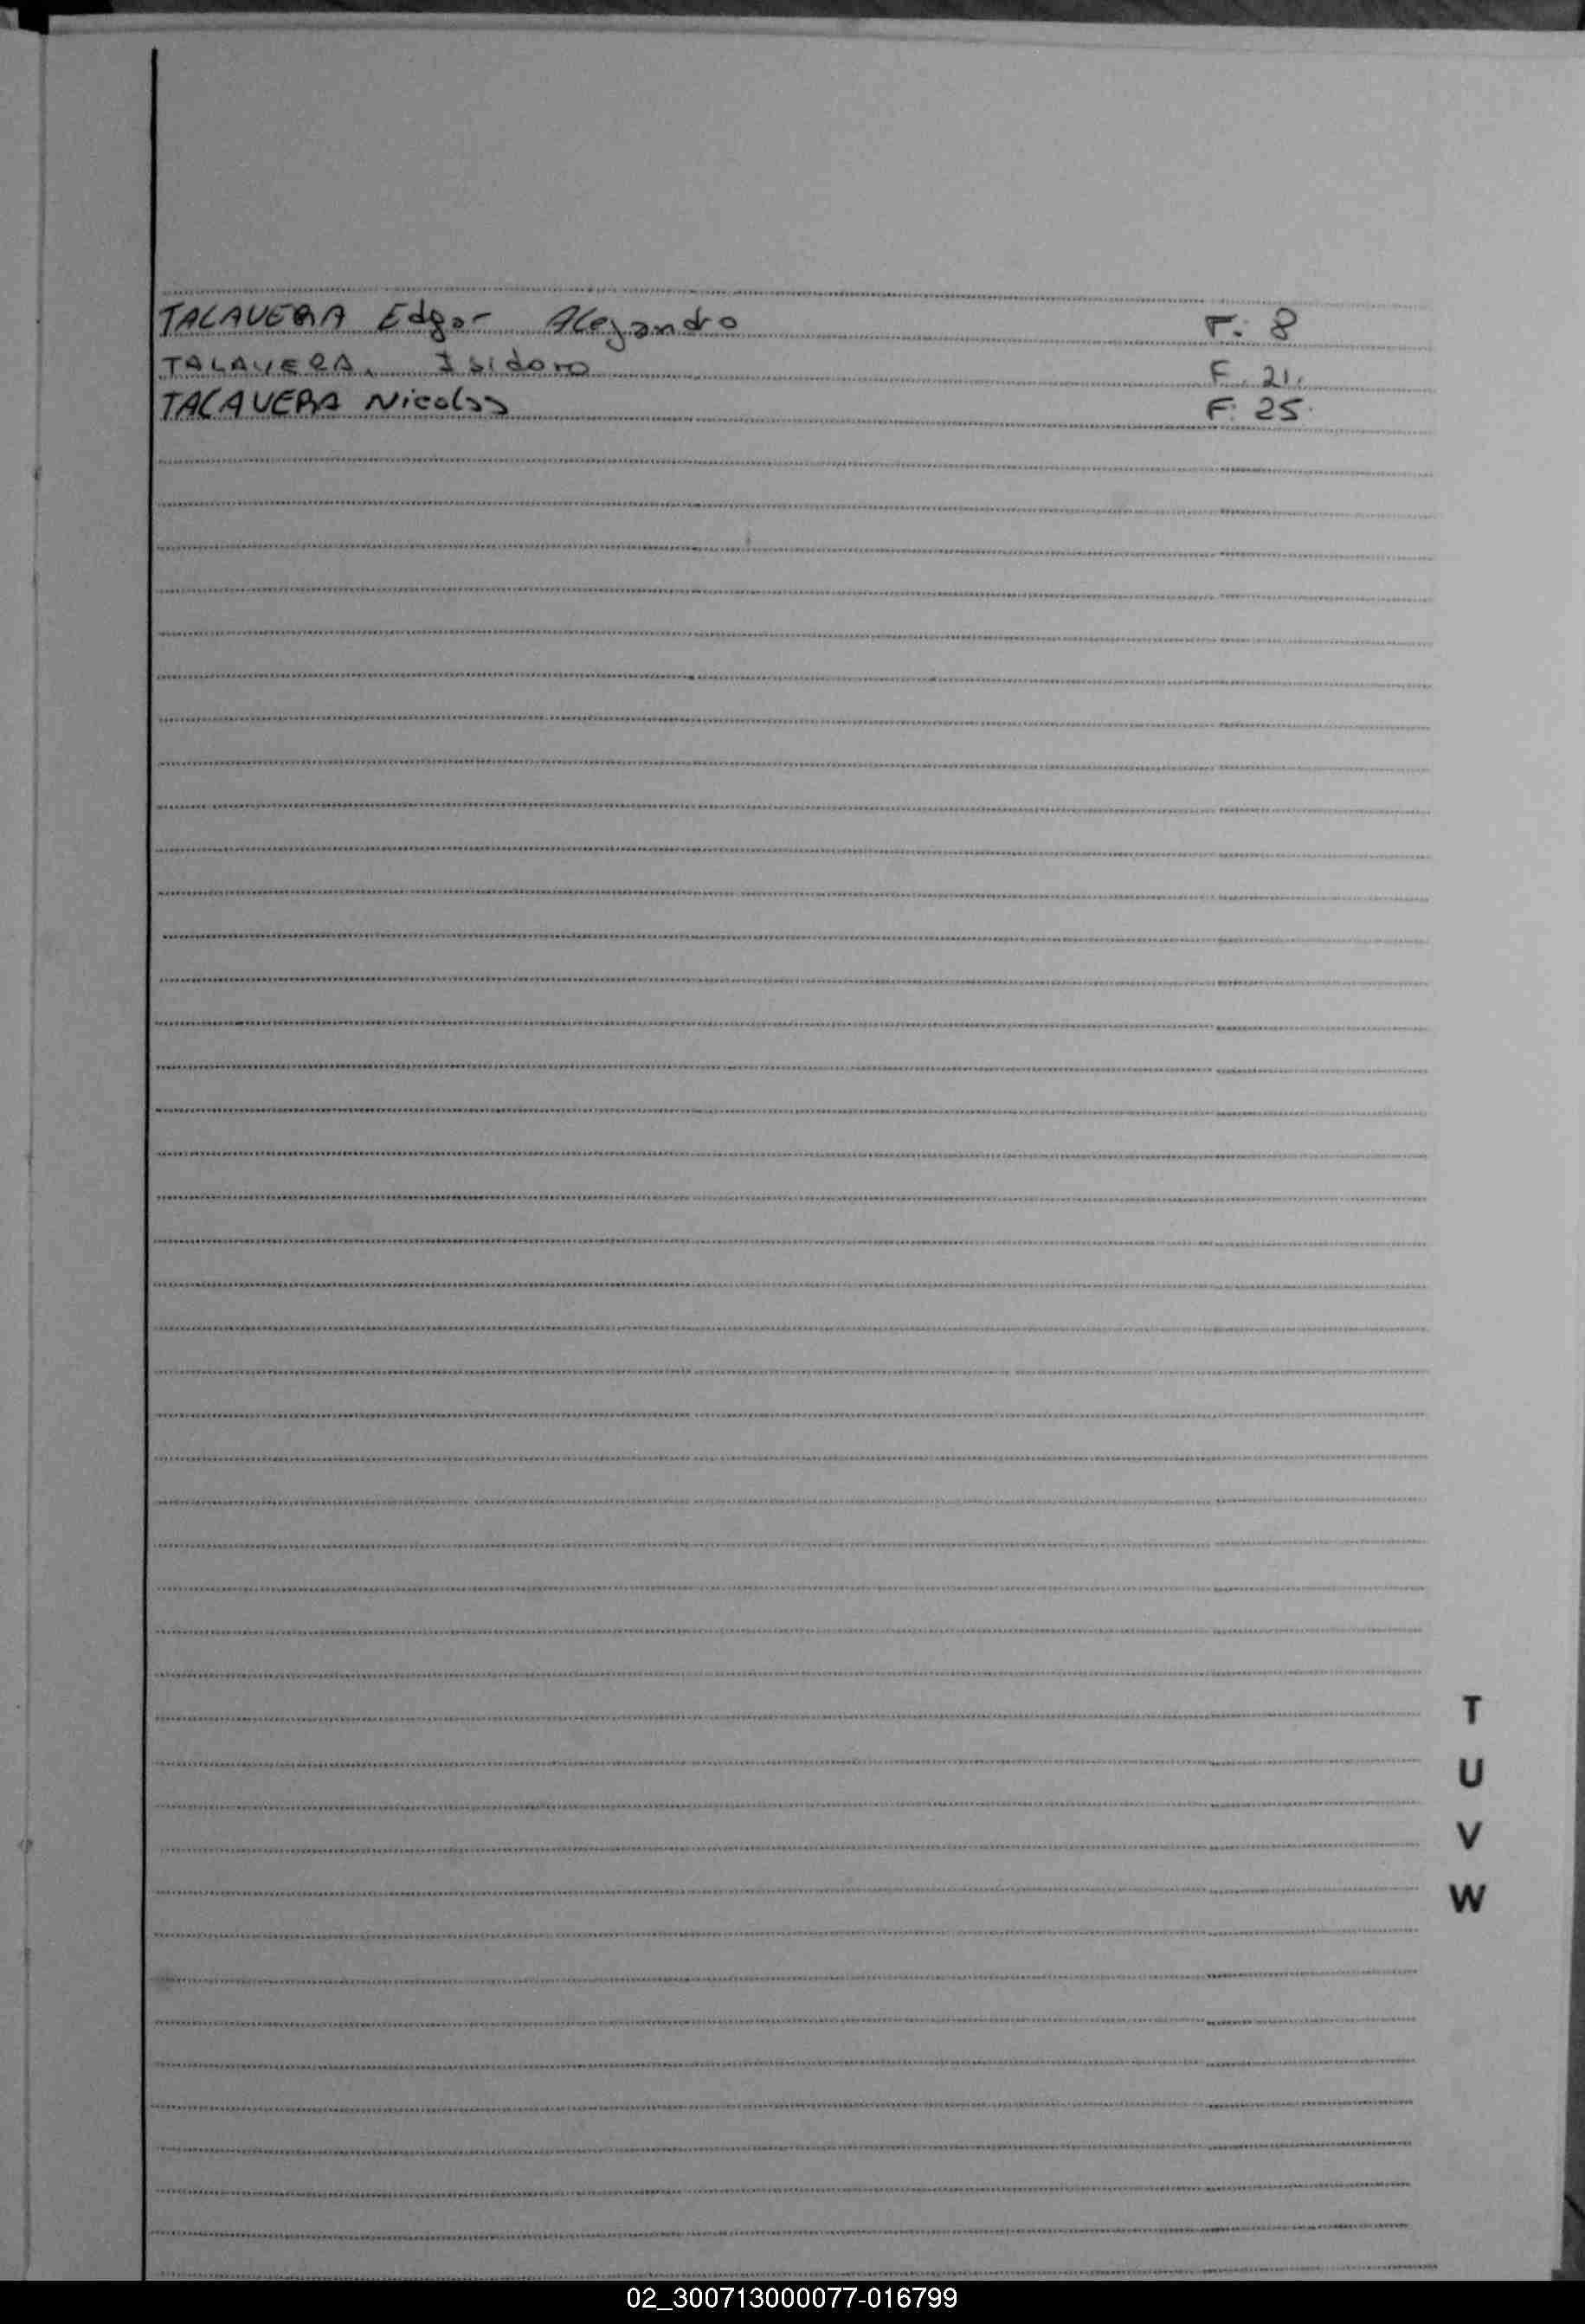 TALAVERA Edgar Alejandro F. 8
TALAVERA, Isidoro F. 21.
TALAVERA Nicolas F. 25.
T
U
V
W
02_300713000077-016799